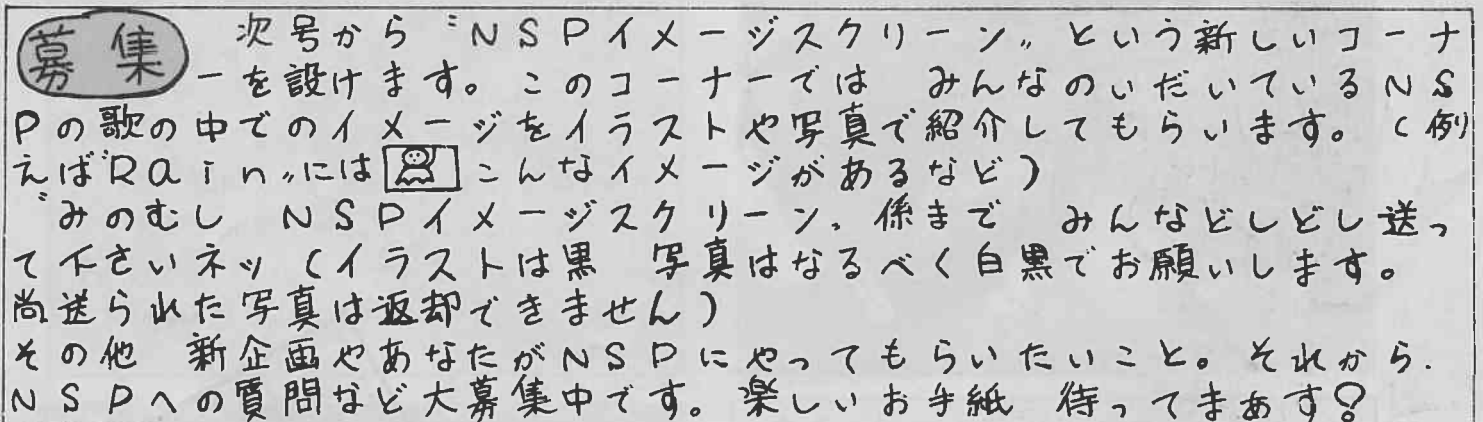 募集 次号から〝NSPイメージスクリーン〟という新しいコーナ
ーを設けます。このコーナーでは みんなのいだいているNS
Pの歌の中でのイメージをイラストや写真で紹介してもらいます。(例
えば〝Rain〟には こんなイメージがあるなど)
〝みのむし NSPイメージスクリーン〟係まで みんなどしどし送っ
て下さいネッ(イラストは黒 写真はなるべく白黒でお願いします。
尚送られた写真は返却できません)
その他 新企画やあなたがNSPにやってもらいたいこと。それから.
NSPへの質問など大募集中です。楽しいお手紙 待ってまあす!